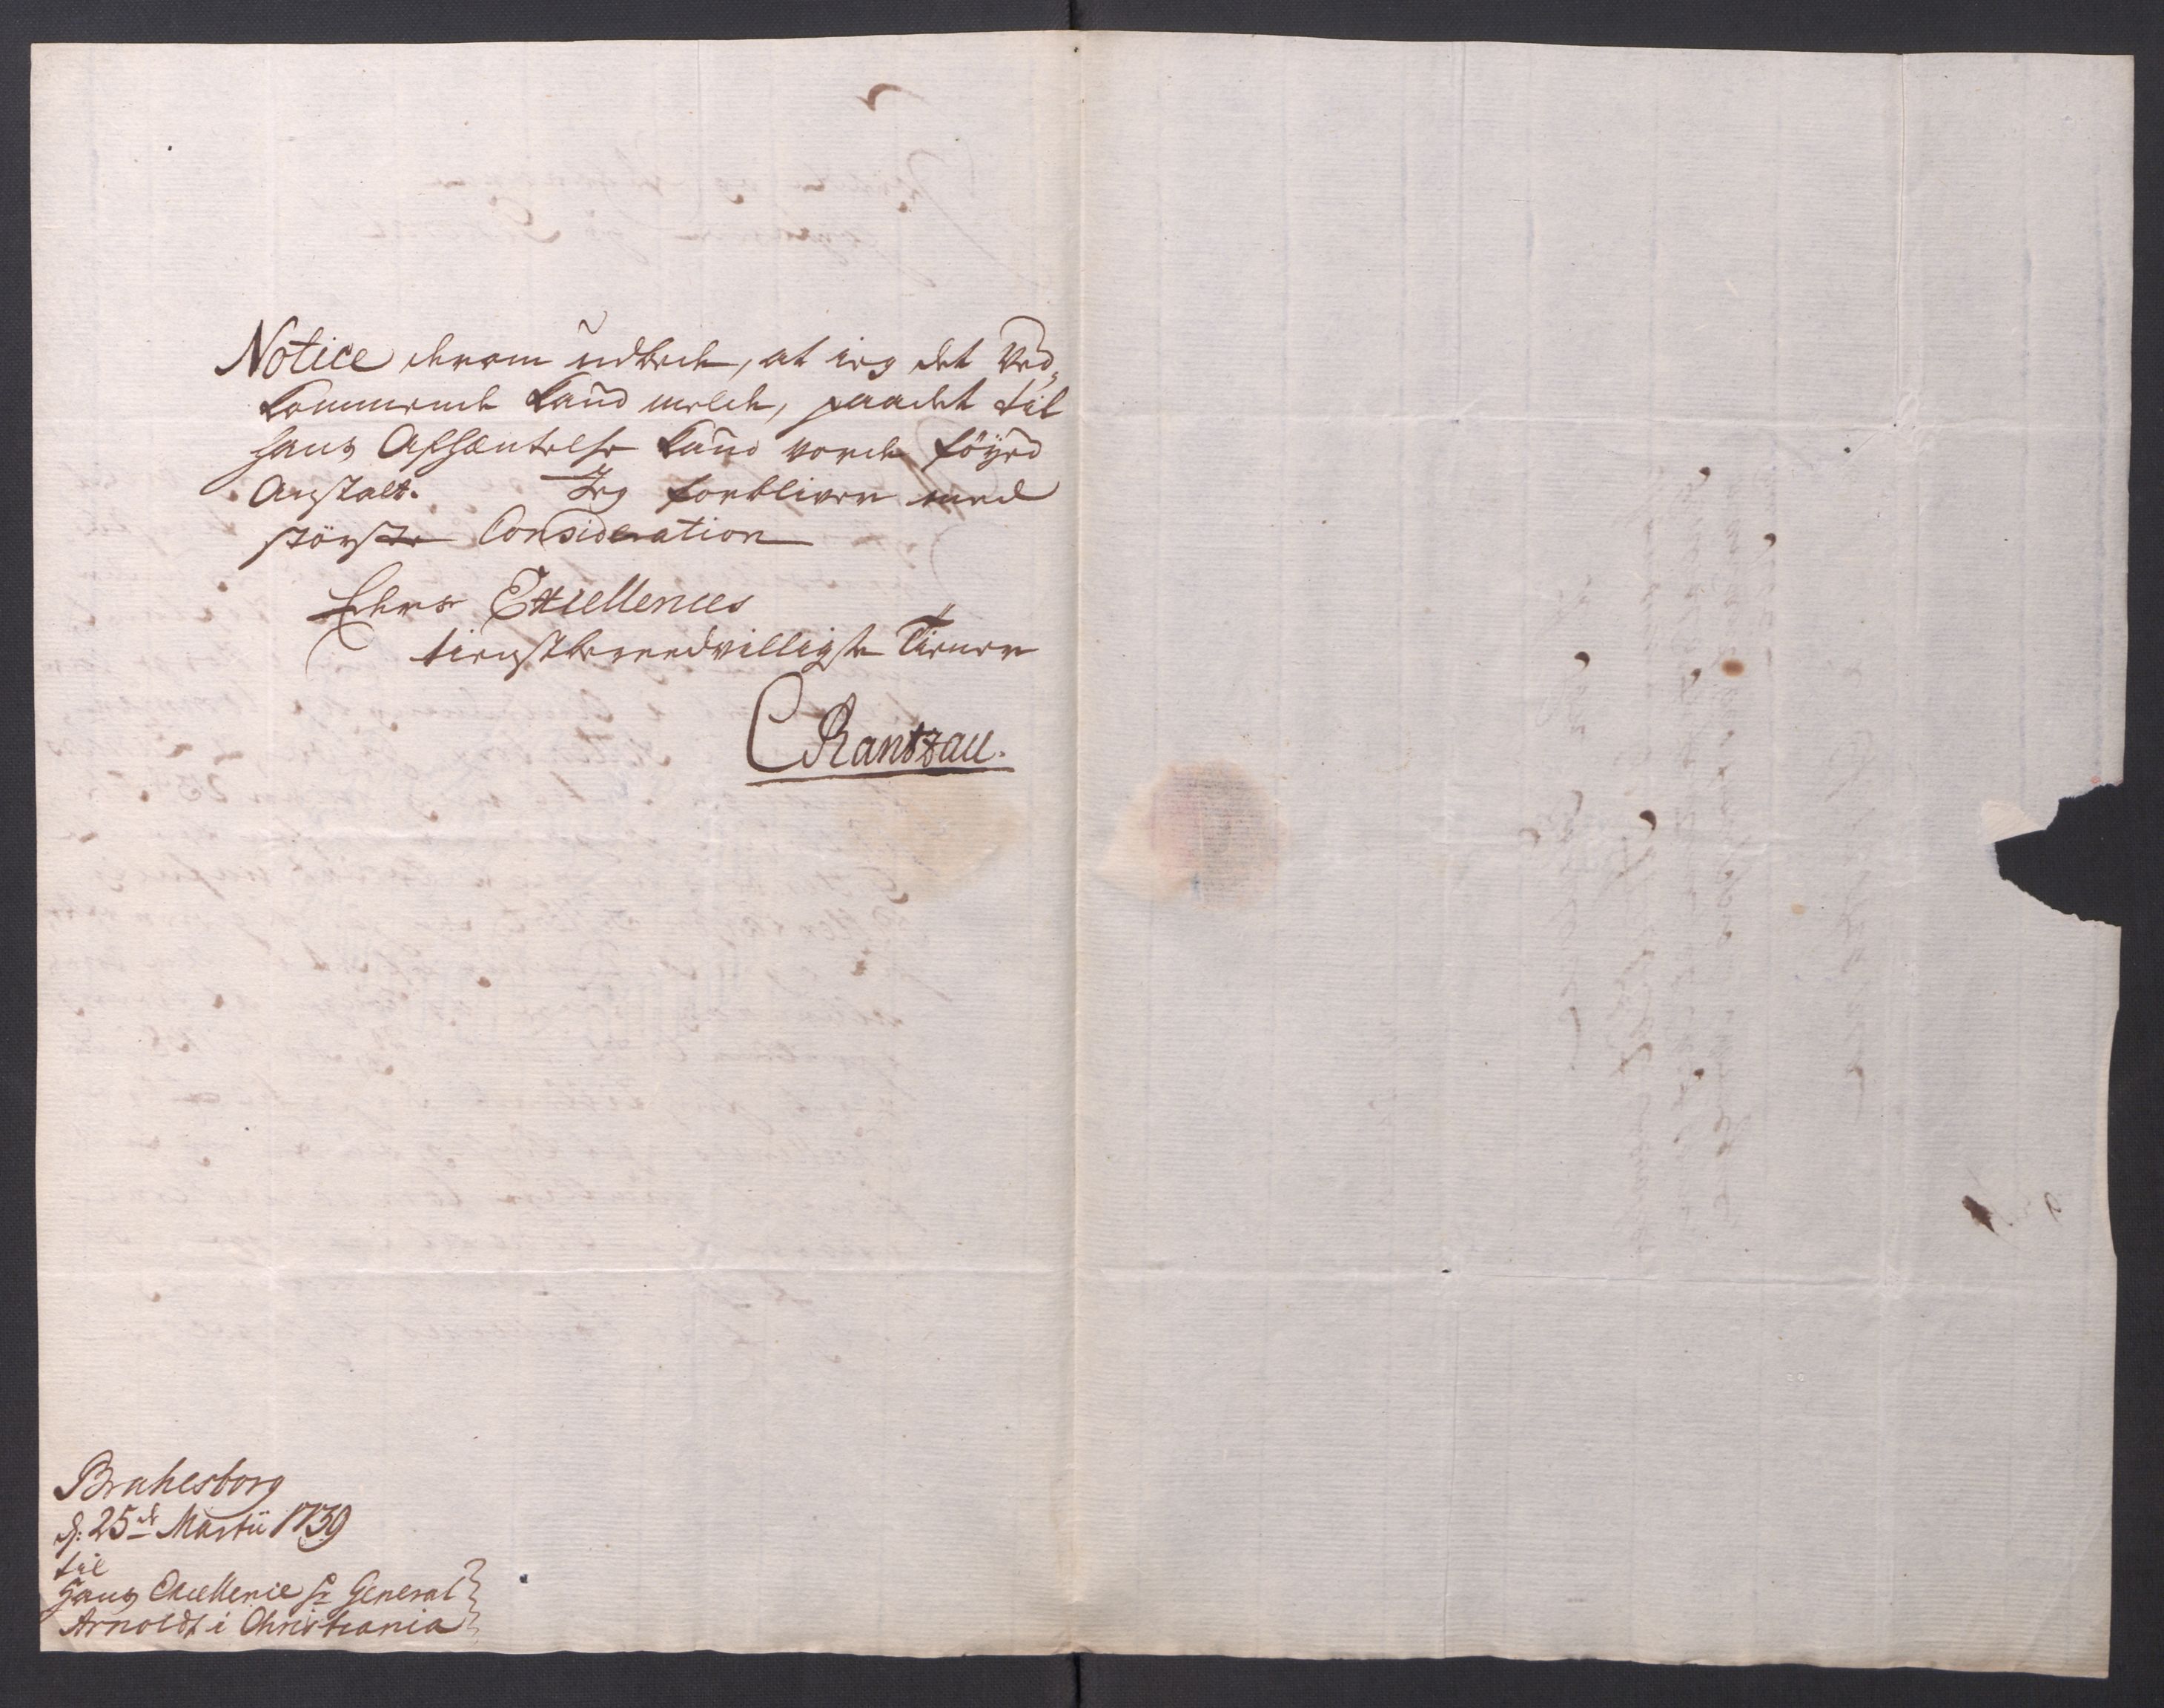 Notice derom udbede, at ieg det Ved,,
kommende kand melde, paadet til
hans Afhæntelse kand vorde föyed
Anstalt. Jeg forbliver med
störste Consideration
Ederes Excellences
tienstbereedvilligste Tiener
C Rantzau.
Brahesborg
d: 25de Martii 1739
til
Hans Excellence Hr General
Arnoldt i Christiania